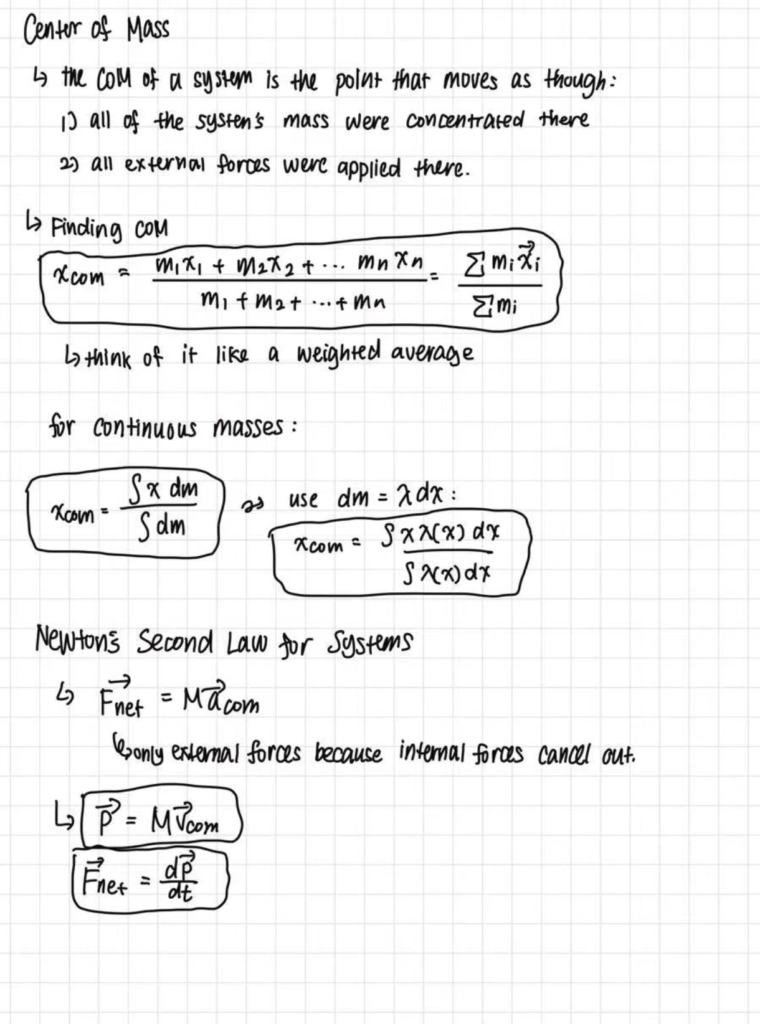 Center of Mass
↳ the COM of a system is the point that moves as though:
1) all of the system's mass were concentrated there
2) all external forces were applied there.
↳ Finding COM
x_com = (m₁x₁ + m₂x₂ + ... mₙxₙ)/(m₁ + m₂ + ... + mₙ) = (∑ mᵢx⃗ᵢ)/(∑ mᵢ)
↳ think of it like a weighted average
for continuous masses:
x_com = (∫x dm)/(∫dm) ⇒ use dm = λdx:
x_com = (∫xλ(x) dx)/(∫λ(x)dx)
Newton's Second Law for Systems
↳ F⃗_net = Ma⃗_com
↳ only external forces because internal forces cancel out.
↳ P⃗ = Mv⃗_com
F⃗_net = dP⃗/dt